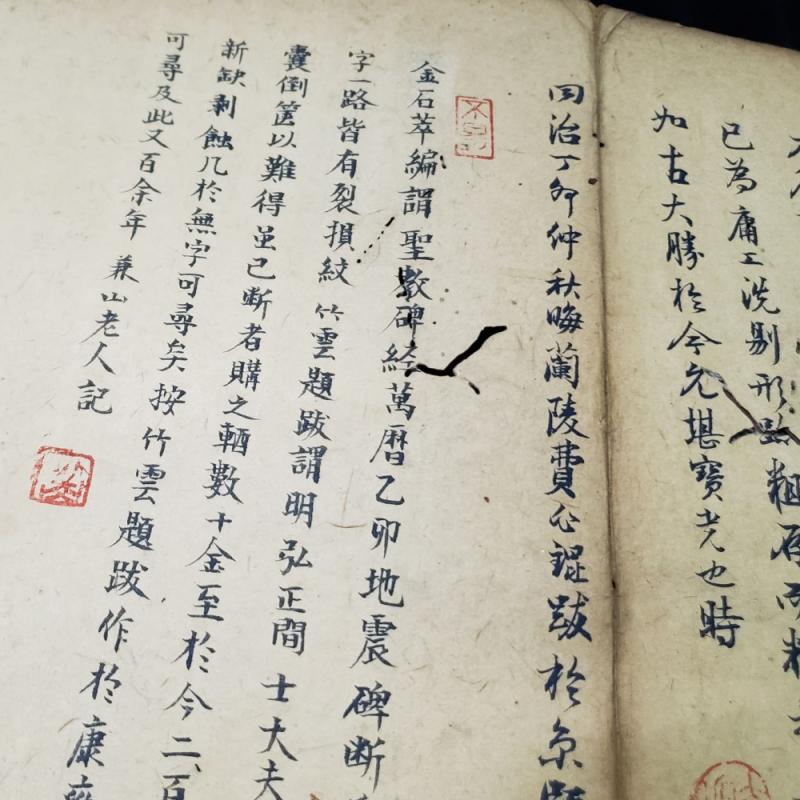 已為庸工洗剔形跡粗存而精
如古大勝於今尤堪寶光也時
同治丁卯仲秋晦蘭陵費心錕跋於京
金石萃編謂聖教碑經萬曆乙卯地震碑斷
字一路皆有裂損紋竹雲題跋謂明弘正間士大夫
囊倒篋以難得並已斷者購之輒數十金至於今二百
新缺剥蝕几於無字可尋矣按竹雲題跋作於康
可尋及此又百余年 兼山老人記